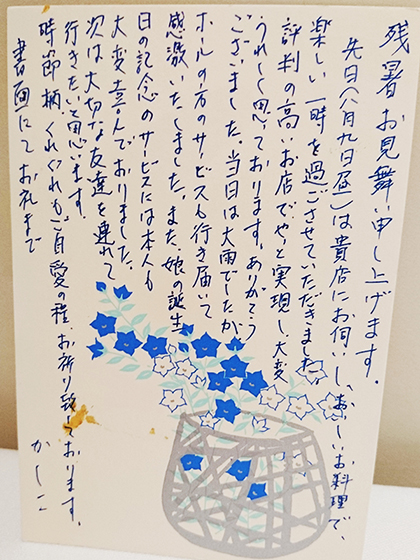 残暑お見舞い申し上げます。
先日(八月九日昼)は貴店にお伺いし、おいしいお料理で、
楽しい一時を過ごさせていただきました。
評判の高いお店でやっと実現し、大変
うれしく思っております。ありがとう
ございました。当日は大雨でしたが
ホールの方のサービスも行き届いて
感激いたしました。また、娘の誕生
日の記念のサービスには本人も
大変喜んでおりました。
次は大切な友達を連れて
行きたいと思います。
時節柄、くれぐれもご自愛の程、お祈り致しております。
書面にてお礼まで
かしこ